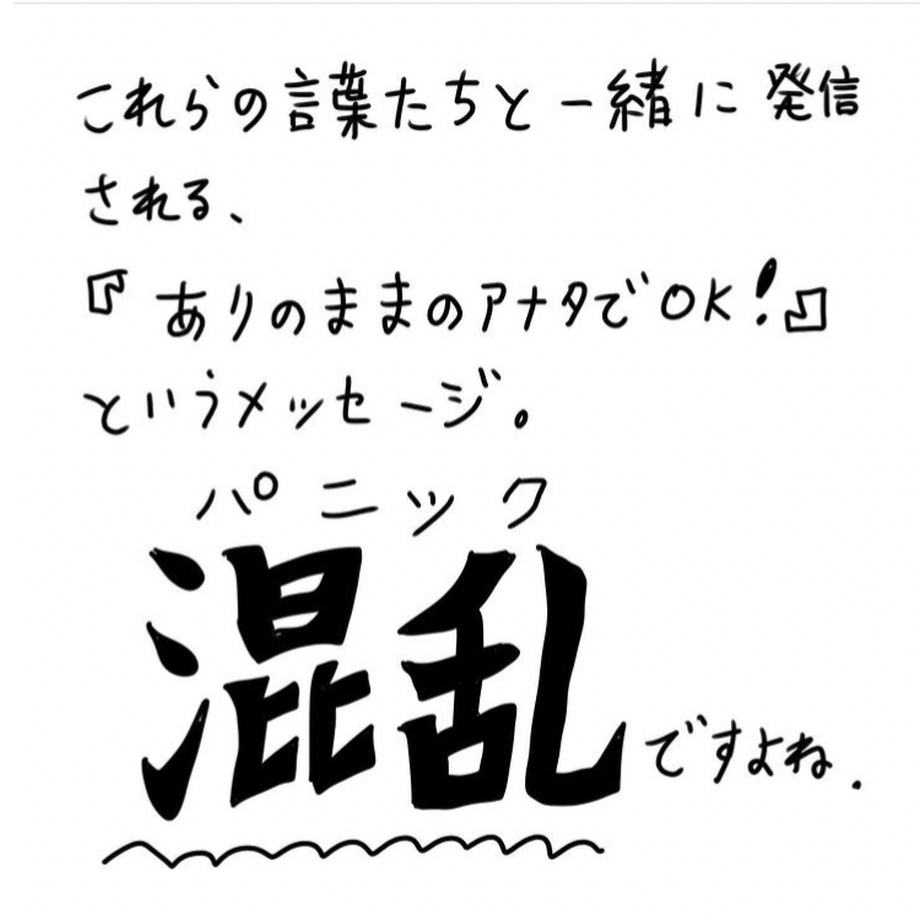 これらの言葉たちと一緒に発信
される、
『ありのままのアナタでOK!』
というメッセージ。
パニック
混乱ですよね.